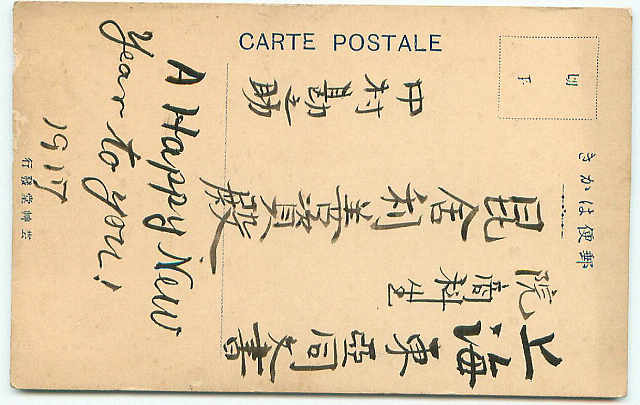 CARTE POSTALE
郵便はかき
上海東亞同文書
院商科生
昆舎利善資殿
中村勘之助
A Happy New
Year to you!
1917
芸艸堂發行